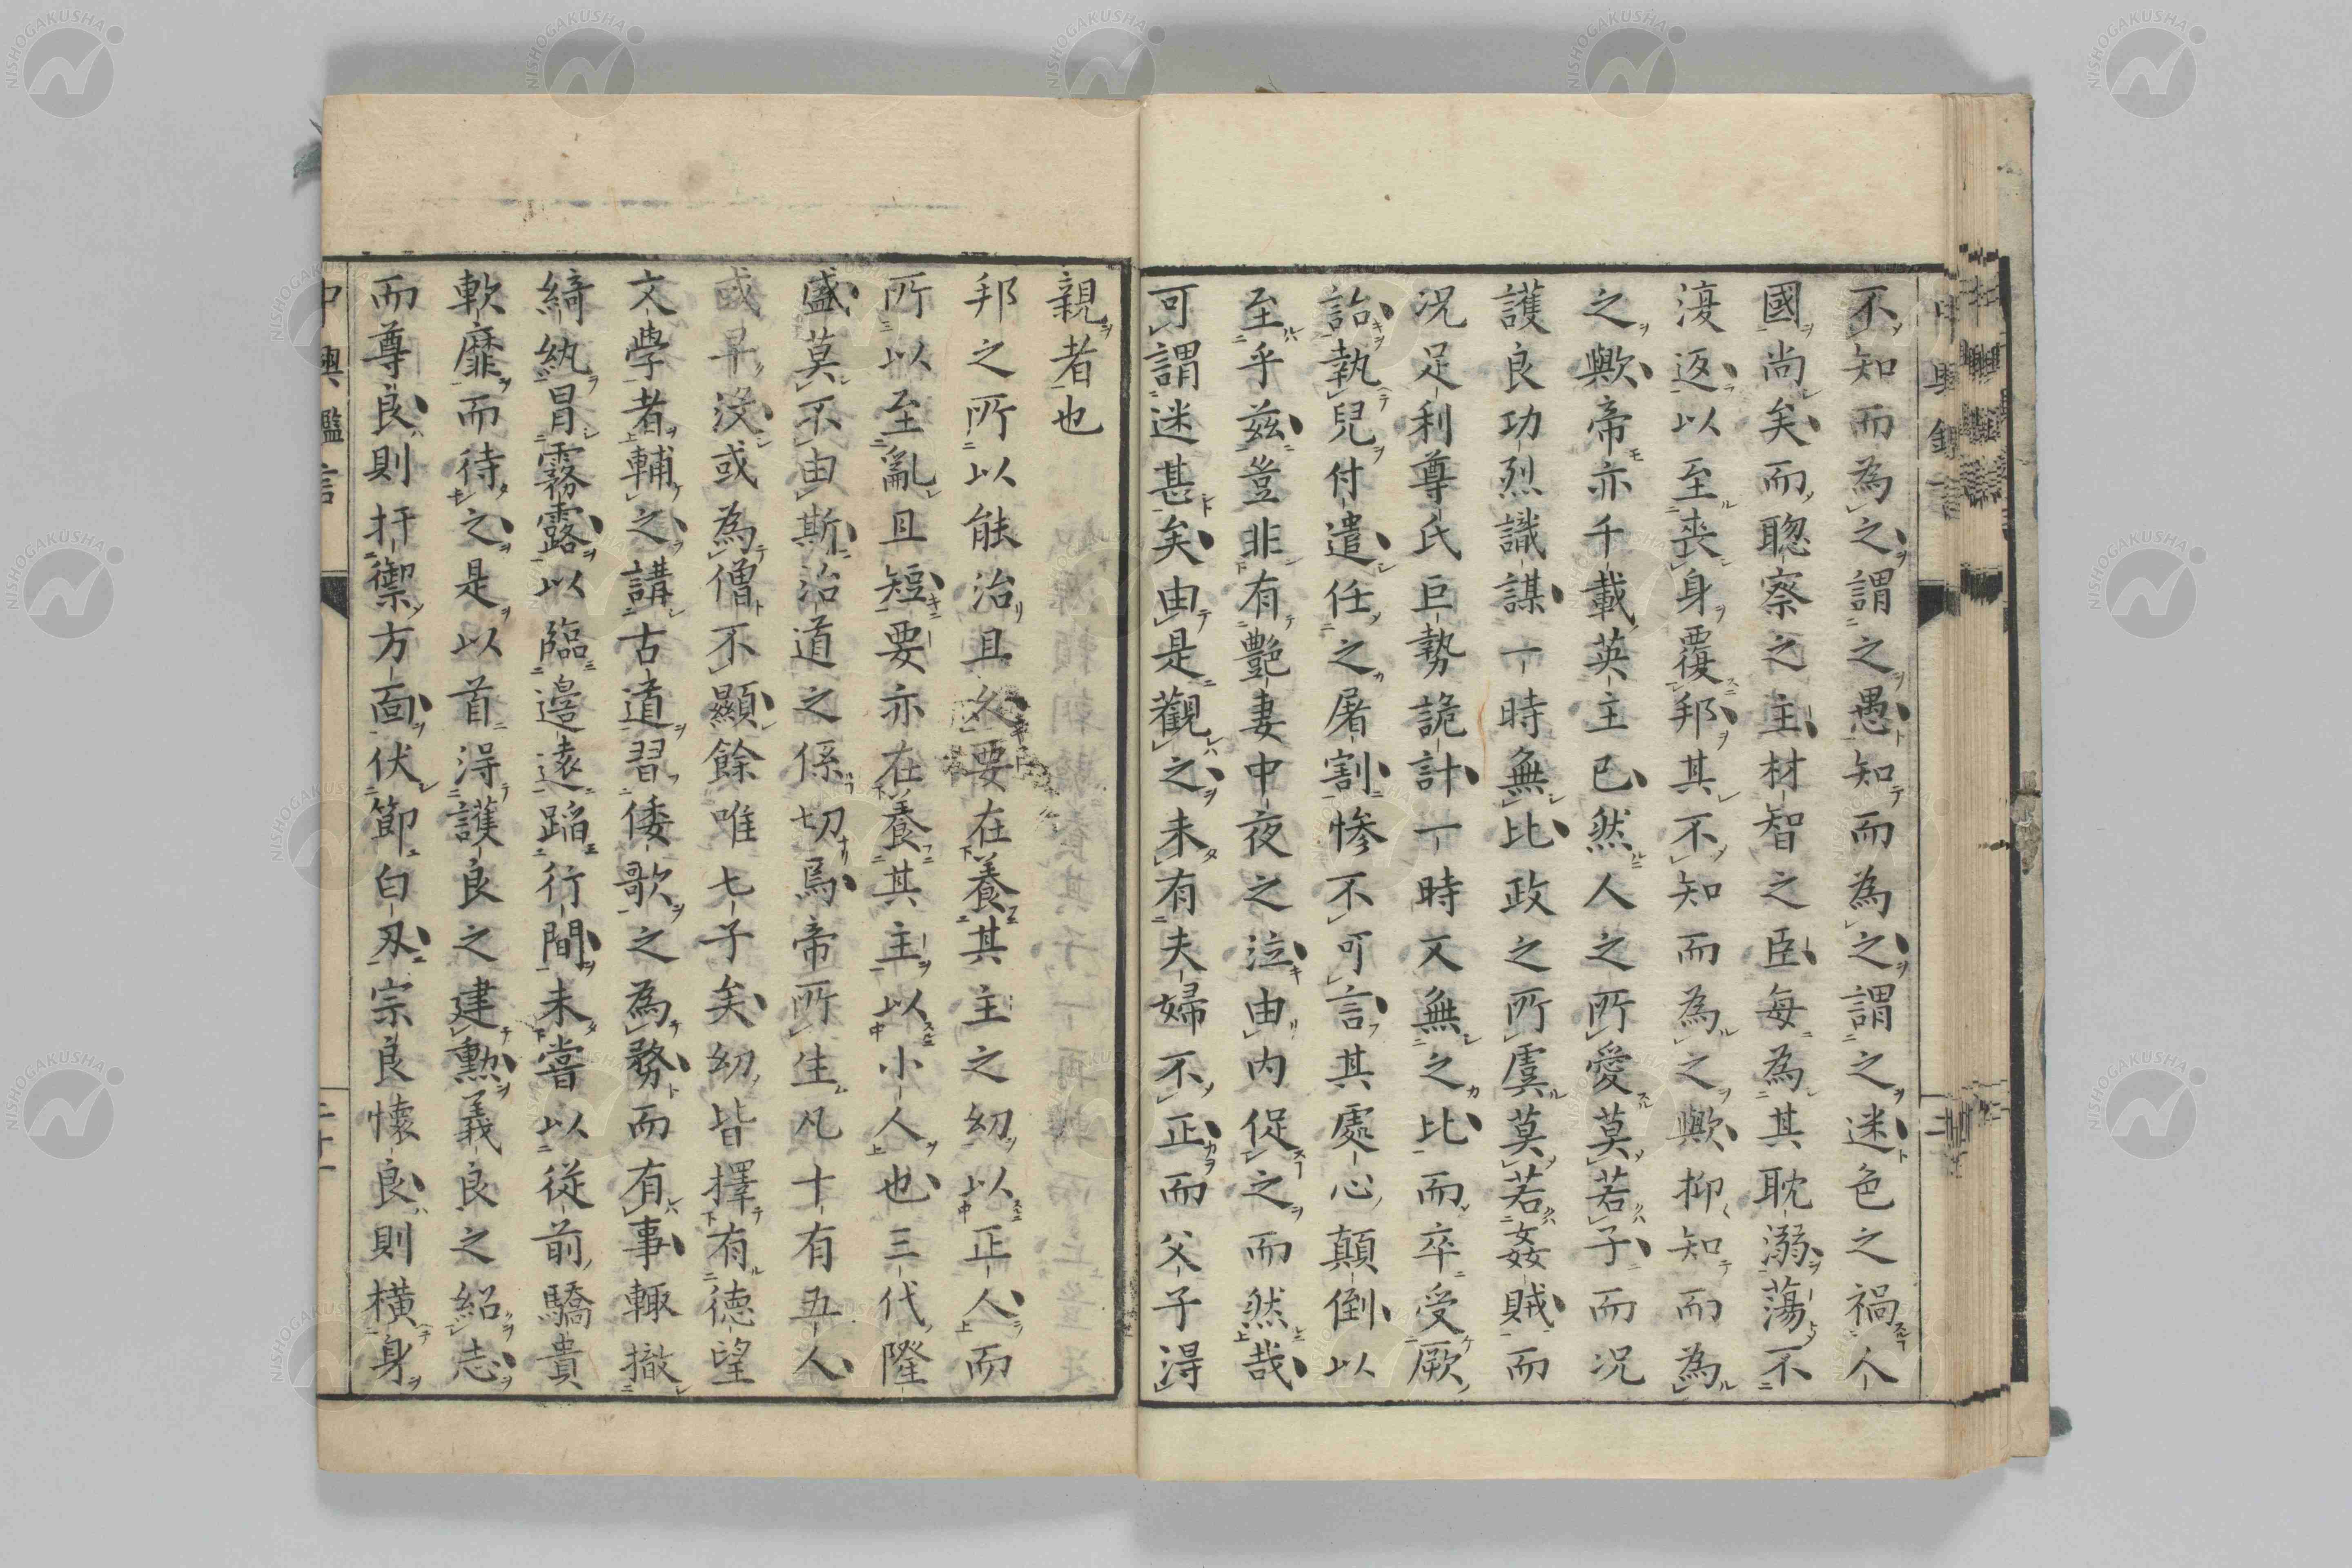 不知而為之謂之愚知而為之謂之迷色之禍人
國尚矣而聰察之主材智之臣每為其耽溺蕩不
復返以至喪身覆邦其不知而為之歟抑知而為
之歟帝亦千載英主已然人之所愛莫若子而況
護良功烈識謀一時無比政之所虞莫若姦賊而
況足利尊氏巨勢詭計一時又無之比而卒受厥
詒執兒付遣任之屠割慘不可言其處心顛倒以
至乎茲豈非有艷妻中夜之泣由內促之而然哉
可謂迷甚矣由是觀之未有夫婦不正而父子得
親者也
邦之所以能治且久要在養其主之幼以正人而
所以至亂且短要亦在養其主以小人也三代隆
盛莫不由斯治道之係切焉帝所生凡十有五人
或早沒或為僧不顯餘唯七子矣幼皆擇有德望
文學者輔之講古道習倭歌之為務而有事輙撤
綺紈冒霧露以臨邊遠蹈行間未嘗以從前驕貴
軟靡而待之是以首得護良之建勲義良之紹志
而尊良則扞禦方面伏節白刃宗良懷良則橫身
中興鑑言
二十一